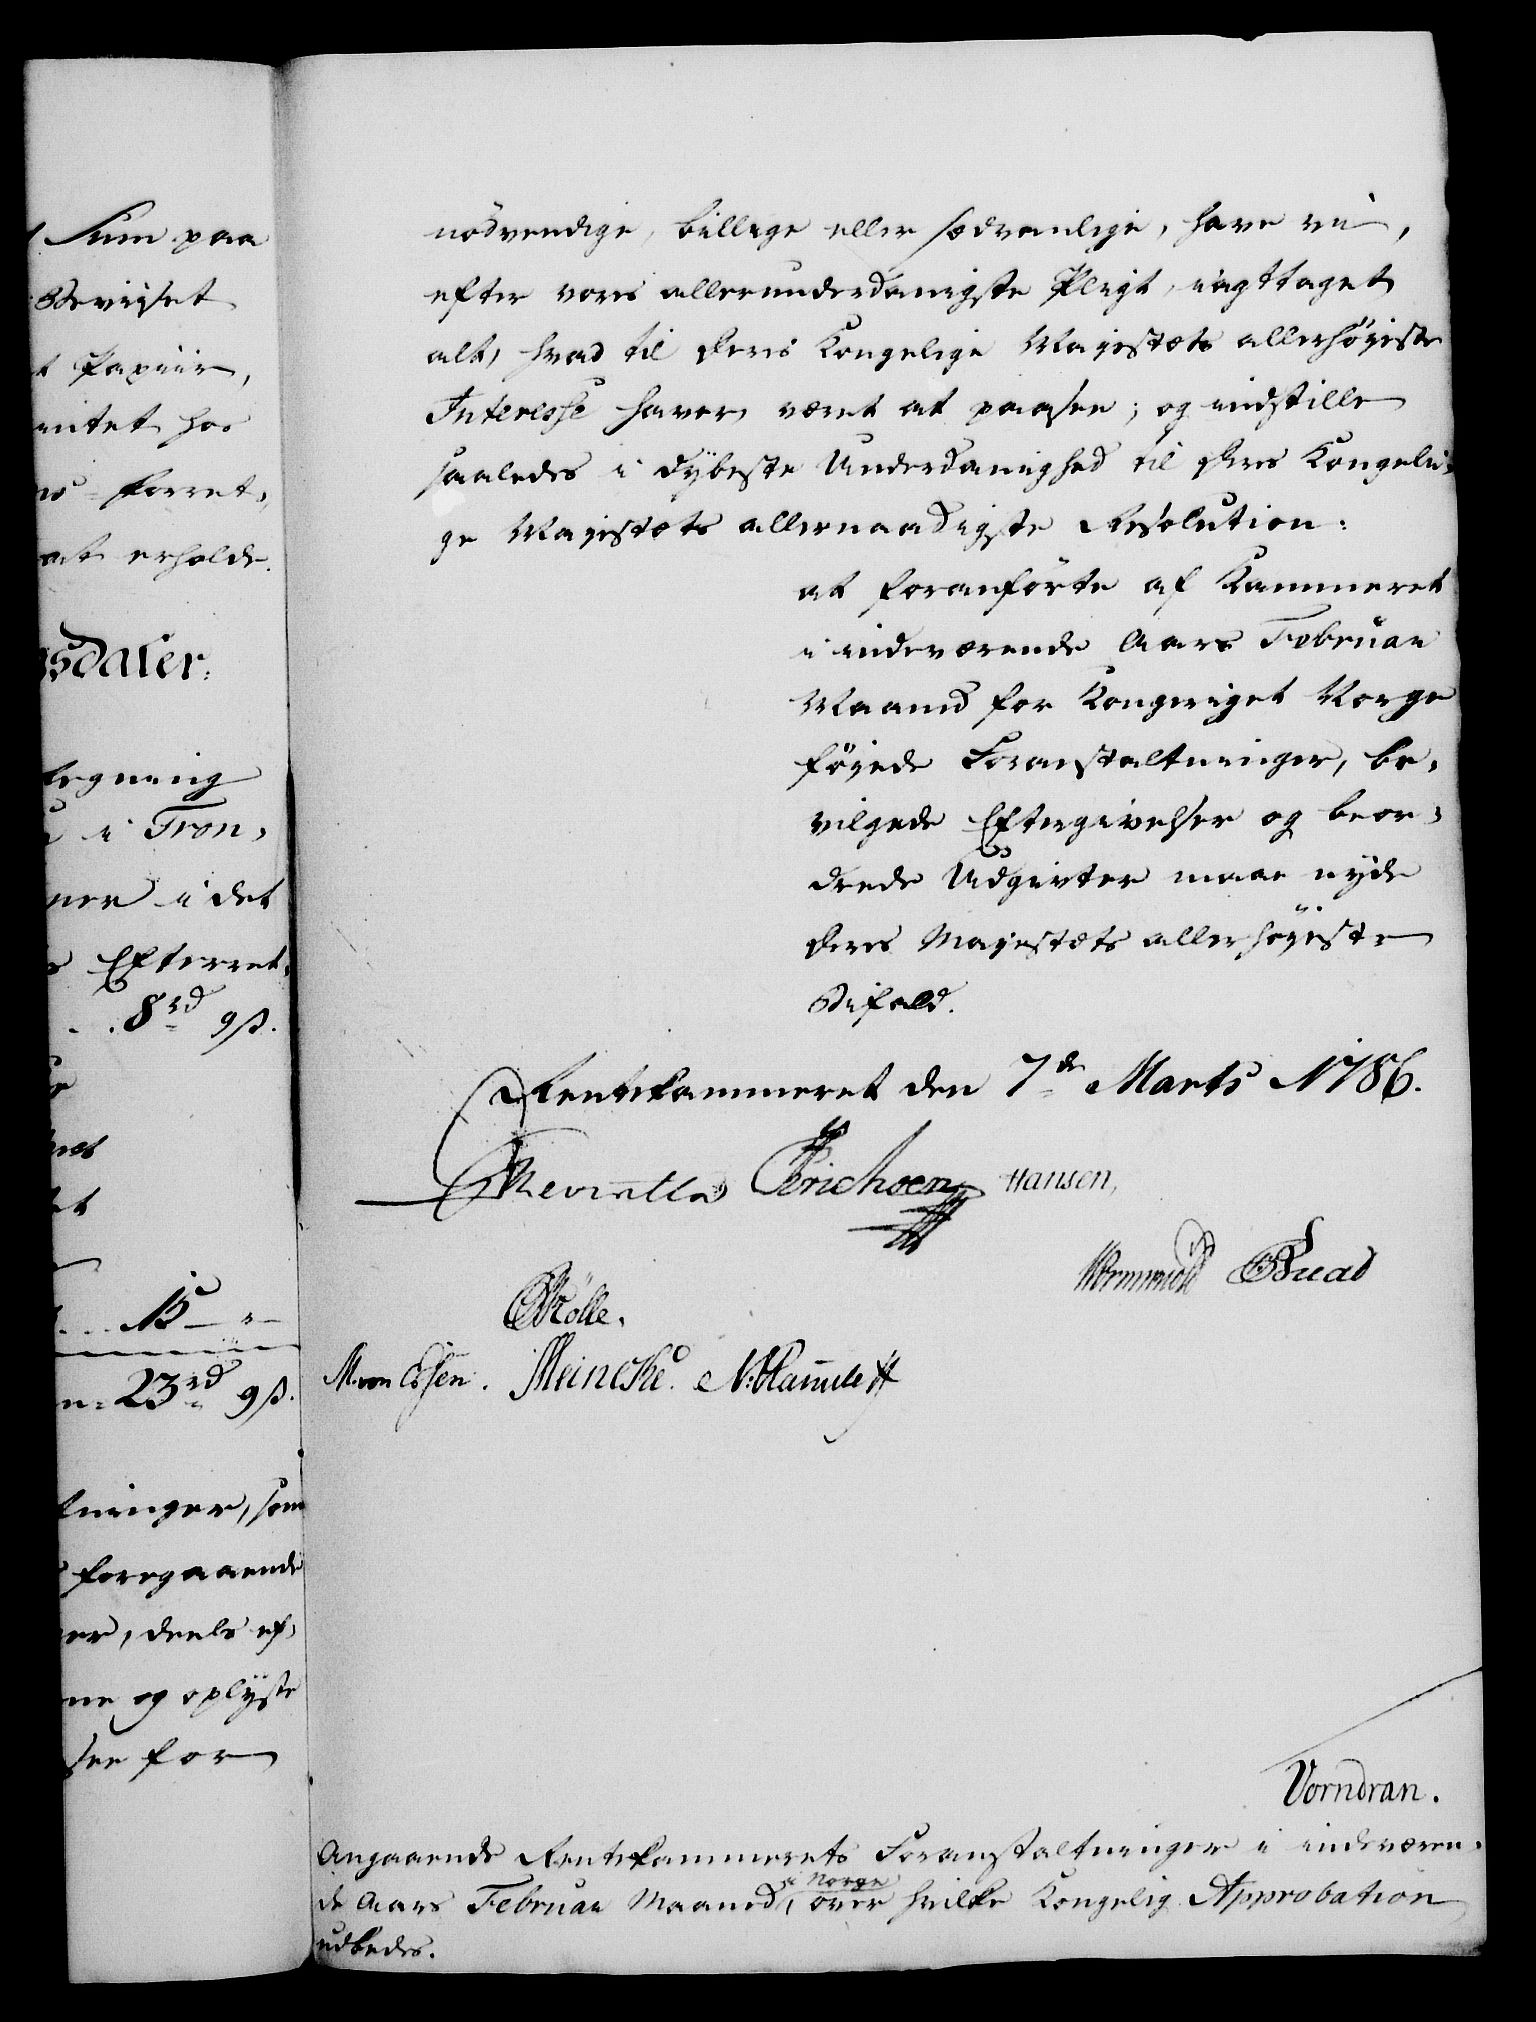 Sum paa
Beviiset
Papiir,
hos
Forret-
at erholde.
sdaler.
i Tron-
i det
Efterret-
8 rd 9 ß.
15 - " -
23 rd 9 ß.
som
foregaaende
deels ef-
og oplÿste
for
nödvendige, billige eller sædvanlige, have vi,
efter vores allerunderdanigste Pligt, iagttaget
alt, hvad til Deres Kongelige Majestæts allerhöyeste
Interesse haver været at paasee; og indstille
saaledes i dÿbeste Underdanighed til Deres Kongeli-
ge Majestæts allernaadigste Resolution:
at foranförte af Kammeret
i indeværende Aars Februar
Maaned for Kongeriget Norge
föyede Foranstaltninger, be-
vilgede Eftergivelser og beor-
drede Udgivter maae nÿde
Deres Majestæts allerhöyeste
Bifald.
Rentekammeret den 7de Marts 1786.
Reventlow Erichsen Hansen,
Wormskiold
Mölle.
M. von Essen. Meincke.
Vorndran.
Angaaende Rentekammerets Foranstaltninger i indeværen-
de Aars Februar Maaned, i Norge over hvilke Kongelig Approbation
udbedes.